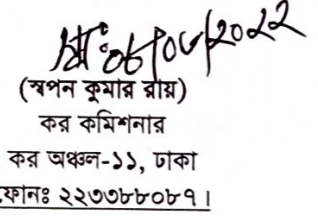 (স্বপন কুমার রায়)
কর কমিশনার
কর অঞ্চল-১১, ঢাকা
ফোনঃ ২২৩৩৮৮০৮৭।